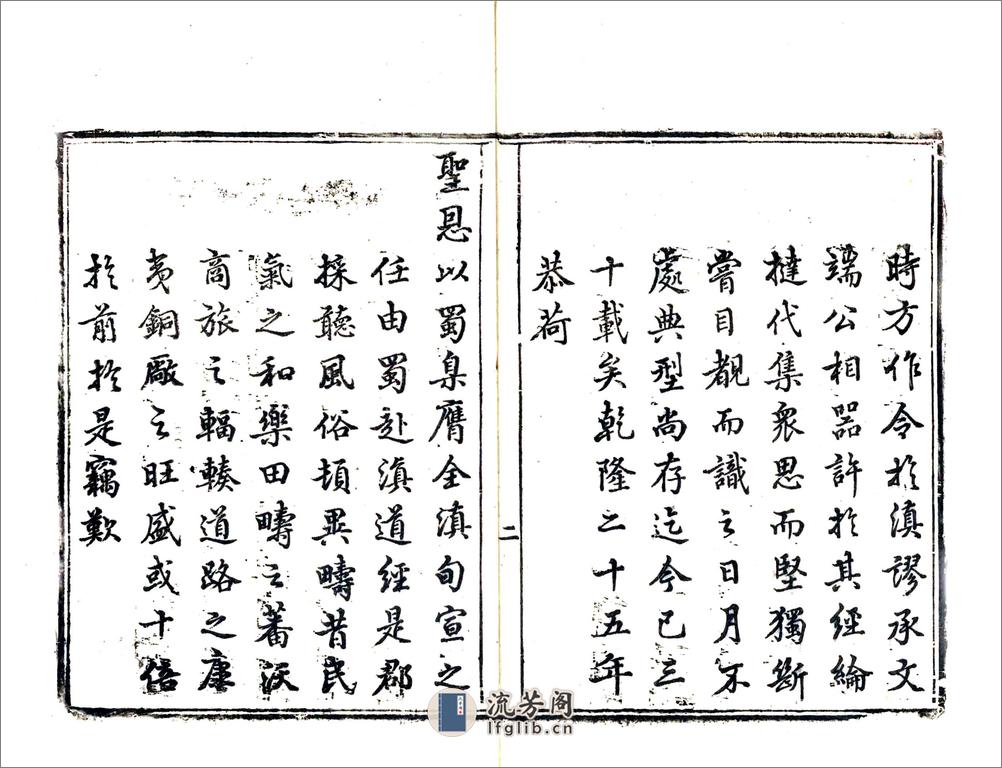 時方作令於滇謬承文
端公相器許於其經綸
撻代集衆思而堅獨斷
嘗目覩而識之日月不
處典型尚存迄今已三
十載矣乾隆二十五年
恭荷
二
聖恩以蜀臬膺全滇旬宣之
任由蜀赴滇道經是郡
採聽風俗頓異疇昔民
氣之和樂田疇之蕃沃
商旅之輻輳道路之康
夷銅廠之旺盛或十倍
於前於是竊歎
流芳阁
lfglib.cn